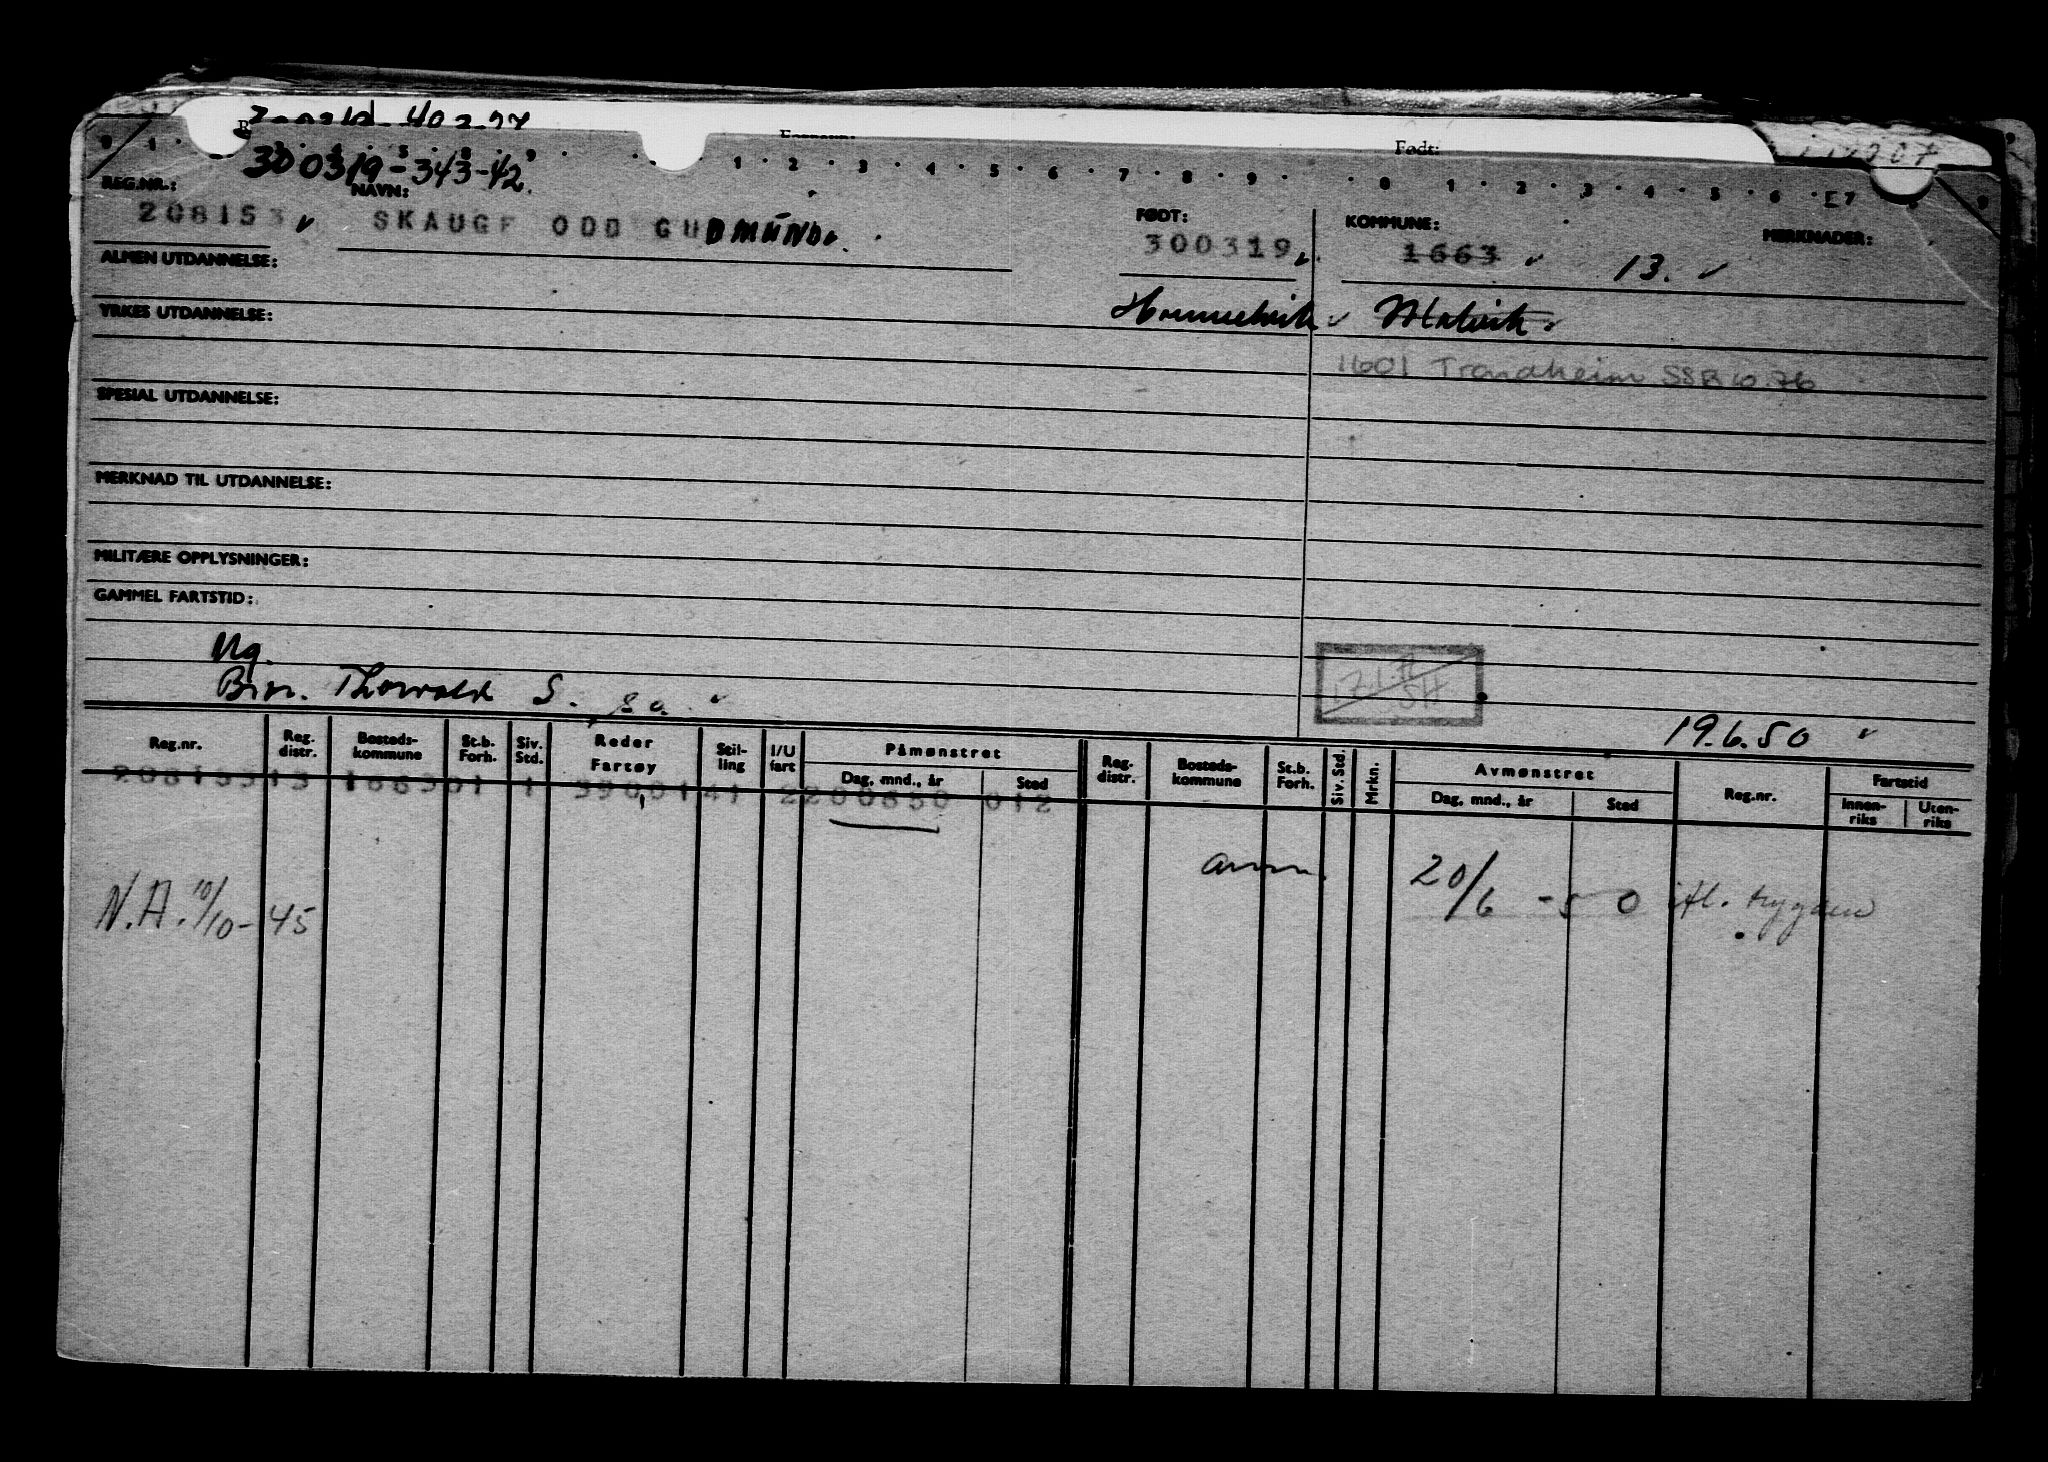 Født:
0 1 1 2 3 4 5 6 7 8 9 0 1 2 3 4 5 6 7
300319-343-42.
REG.NR.: NAVN: FØDT: KOMMUNE: MERKNADER:
208153 SKAUGE ODD GUDMUND. 300319 1663 13.
ALMEN UTDANNELSE:
Hommelvik Malvik
YRKES UTDANNELSE:
1601 Trondheim SSR 10.76
SPESIAL UTDANNELSE:
MERKNAD TIL UTDANNELSE:
MILITÆRE OPPLYSNINGER:
GAMMEL FARTSTID:
Ug.
Bror. Thorvald S. s.a.
19.6.50
Reg.nr. Reg. distr. Bosteds-kommune St.b. Forh. Siv. Std. Reder Fartøy Stil-ling I/U fart Påmønstret Dag, mnd., år Sted Reg. distr. Bosteds-kommune St.b. Forh. Siv. Std. Mrkn. Avmønstret Dag, mnd., år Sted Reg.nr. Fartstid Innen-riks Uten-riks
208153 13 1663 01 1 59001 41 2 200650 012
ann. 20/6 -50 ifl. trygden
N.A. 10/10-45